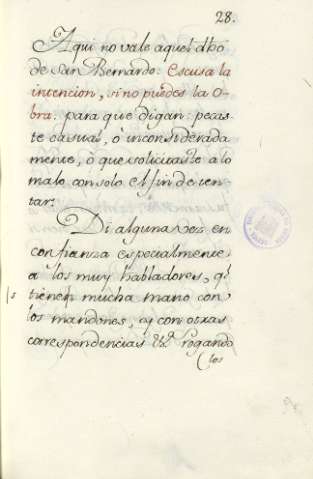 28.
Aqui no vale aquel dho
de San Bernardo: Escusa la
intencion, si no puedes la O-
bra: para que digan: pecas-
te casual, ó inconsiderada
mente, ó que solicitaste a lo
malo con solo el fin de ten-
tar.
Di alguna vez en
confianza especialmente
a los muy habladores, q.
tienen mucha mano con
los mandones, ay con otras
correspondencias &a. rogando
los